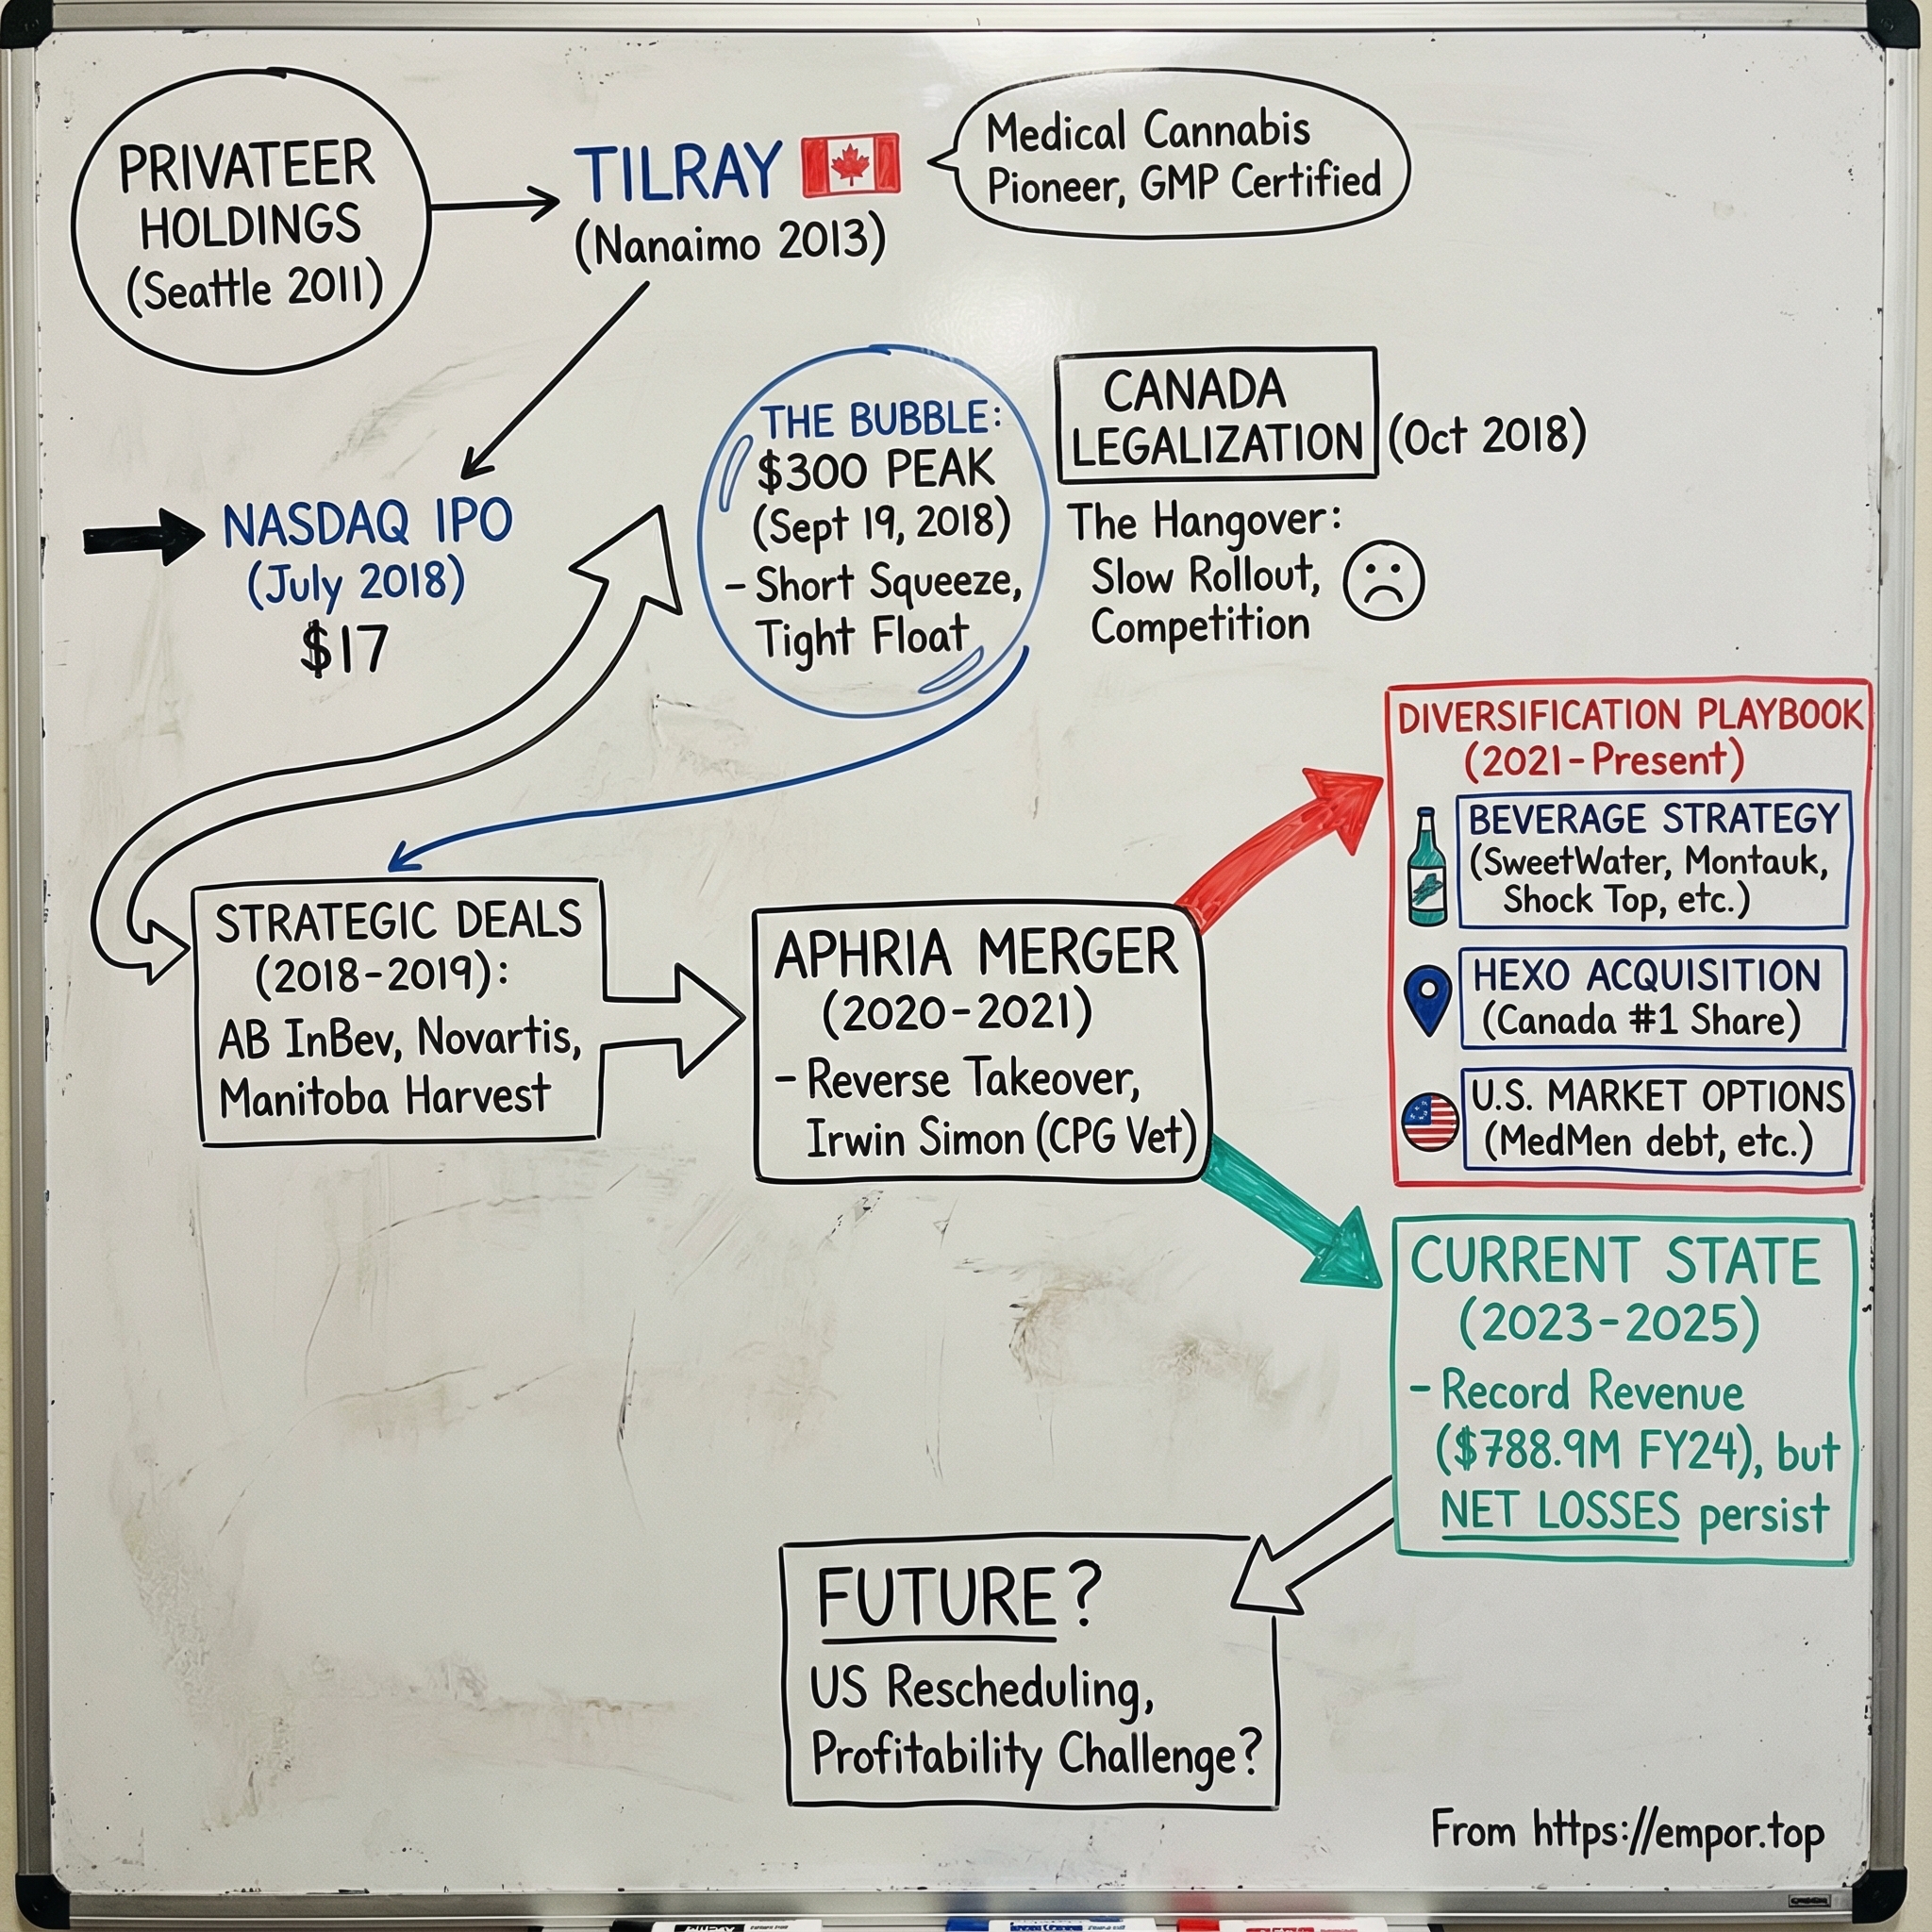 PRIVATEER
HOLDINGS
(Seattle 2011)
TILRAY
(Nanaimo 2013)
Medical Cannabis
Pioneer, GMP Certified
NASDAQ IPO
(July 2018)
$17
THE BUBBLE:
$300 PEAK
(Sept 19, 2018)
- Short Squeeze,
Tight Float
CANADA
LEGALIZATION (Oct 2018)
The Hangover:
Slow Rollout,
Competition
STRATEGIC DEALS
(2018-2019):
AB InBev, Novartis,
Manitoba Harvest
APHRIA MERGER
(2020-2021)
- Reverse Takeover,
Irwin Simon (CPG Vet)
DIVERSIFICATION PLAYBOOK
(2021-Present)
BEVERAGE STRATEGY
(SweetWater, Montauk,
Shock Top, etc.)
HEXO ACQUISITION
(Canada #1 Share)
U.S. MARKET OPTIONS
(MedMen debt, etc.)
CURRENT STATE
(2023-2025)
- Record Revenue
($788.9M FY24), but
NET LOSSES persist
FUTURE?
US Rescheduling,
Profitability Challenge?
From https://empor.top